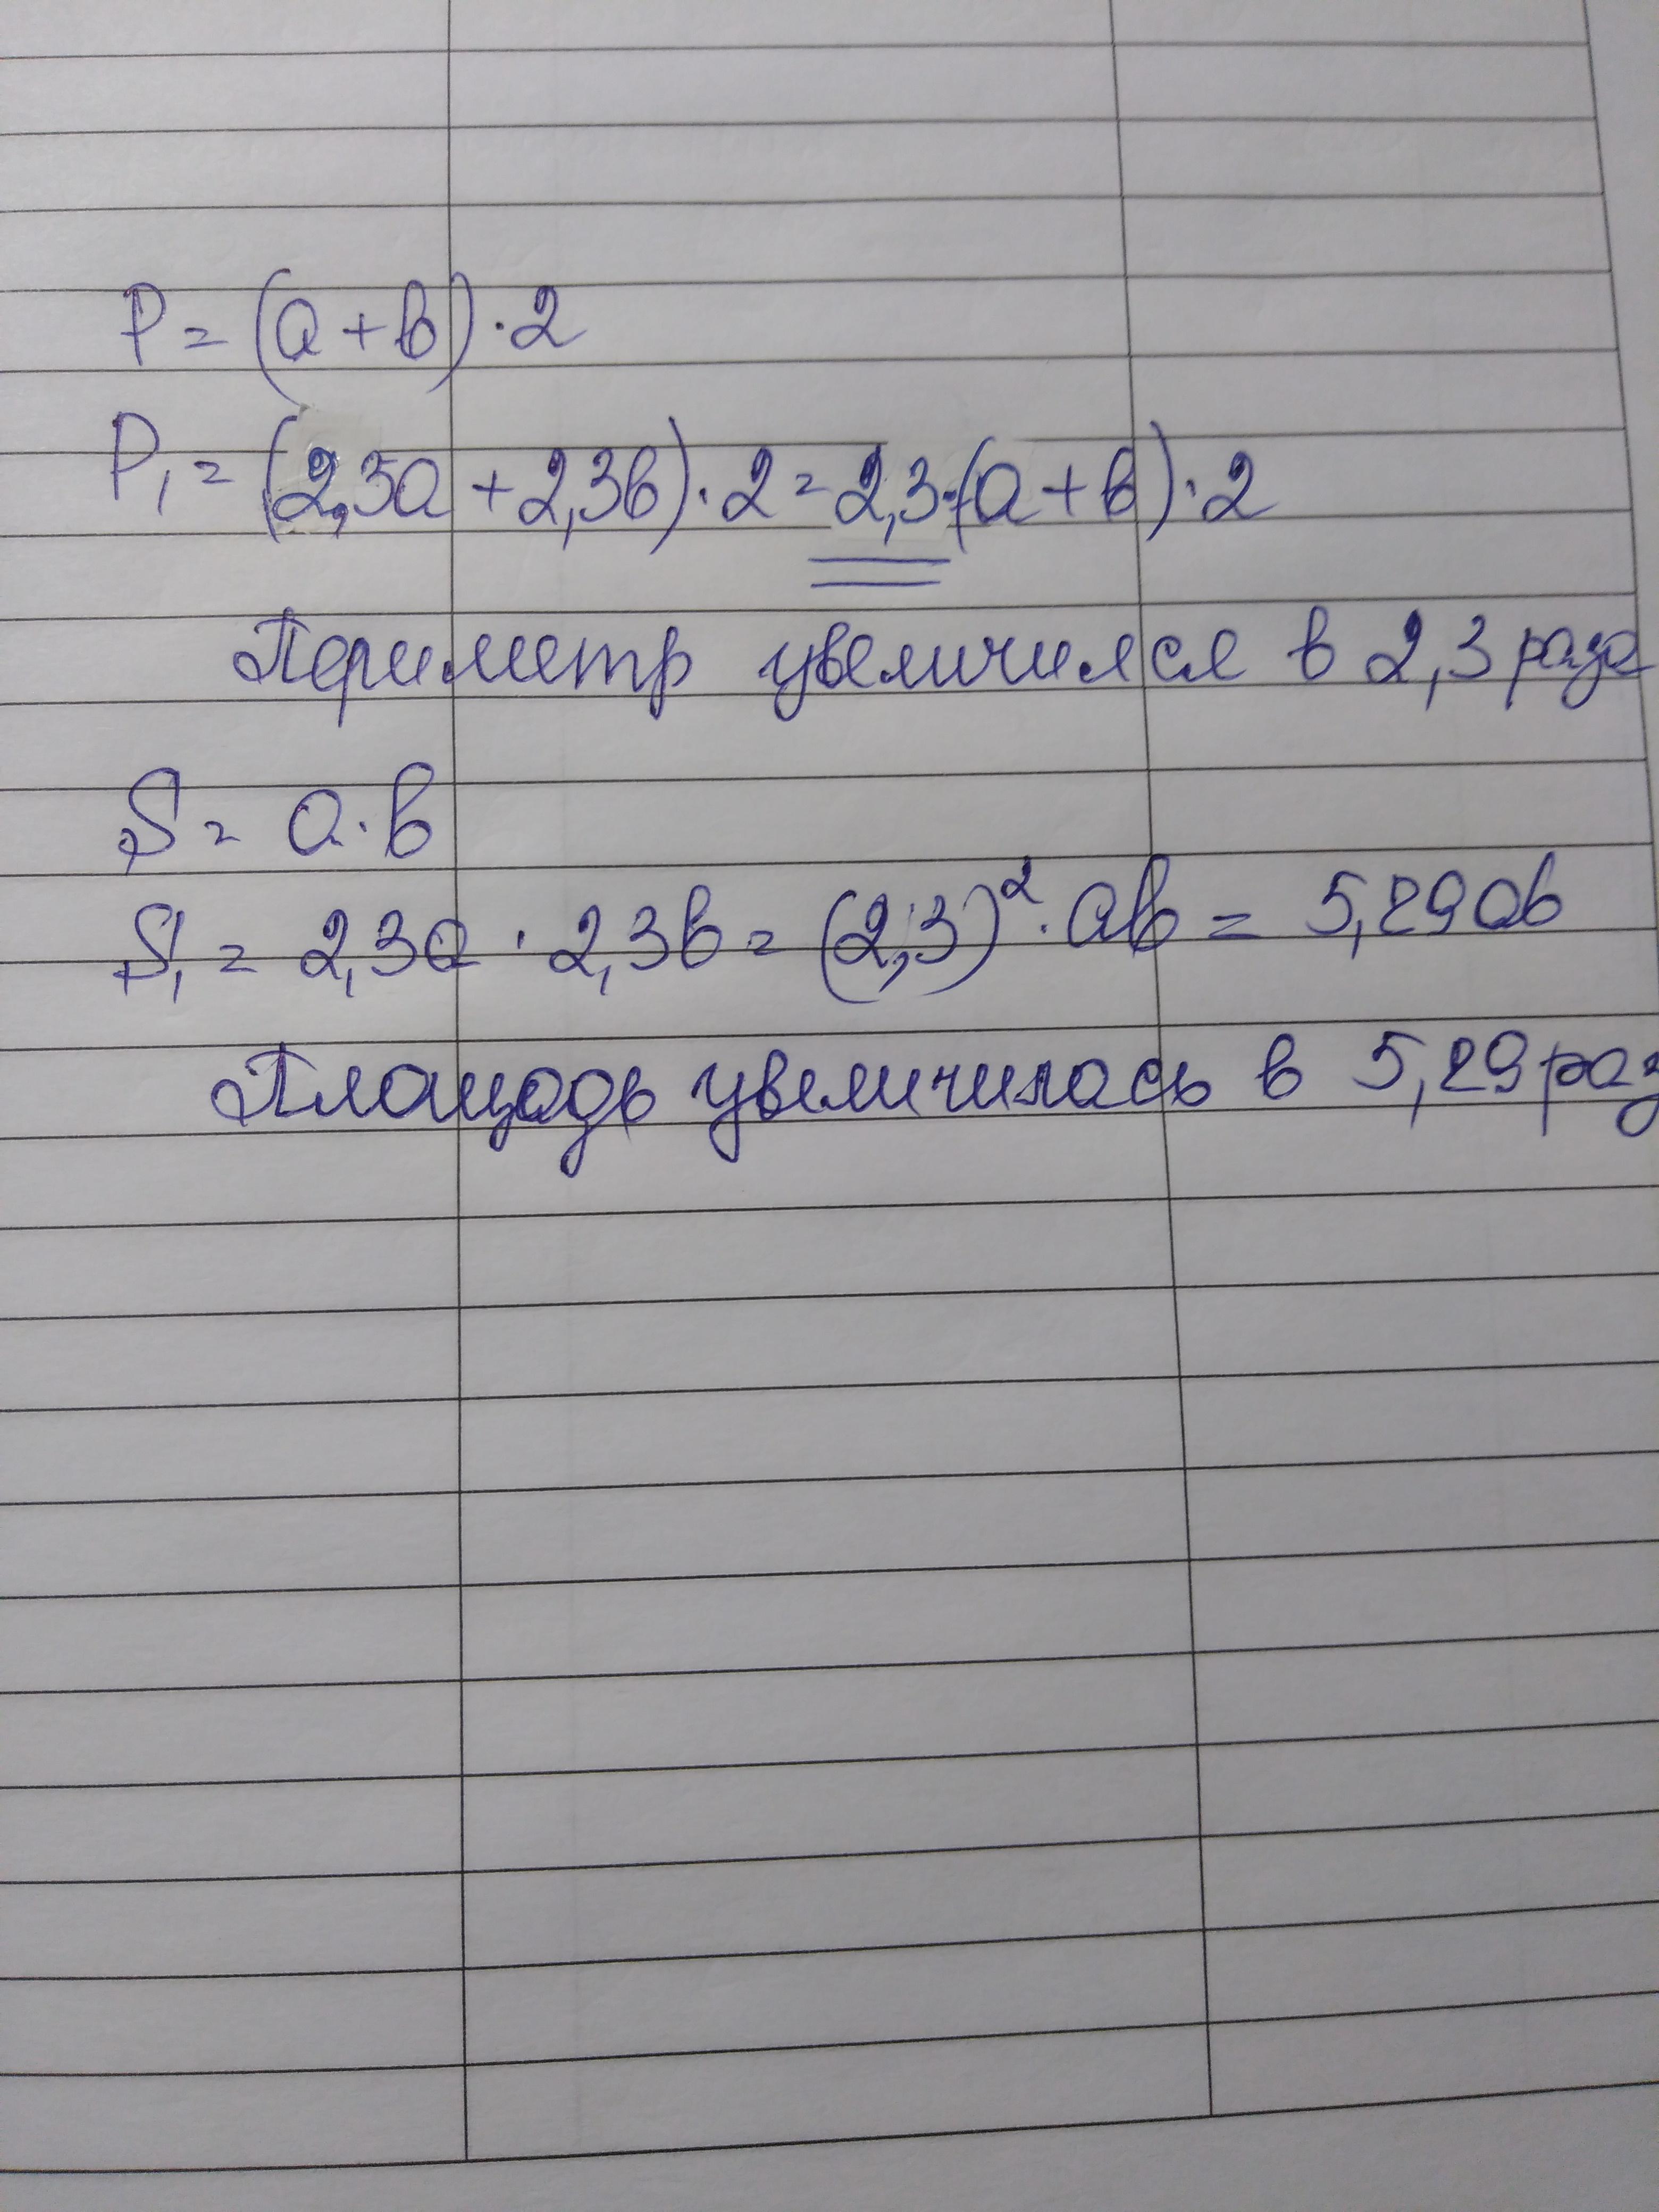 P = (a + b) · 2
P₁ = (2,3a + 2,3b) · 2 = 2,3 · (a + b) · 2
Периметр увеличился в 2,3 раза
S = a · b
S₁ = 2,3a · 2,3b = (2,3)² · ab = 5,29ab
Площадь увеличилась в 5,29 раз